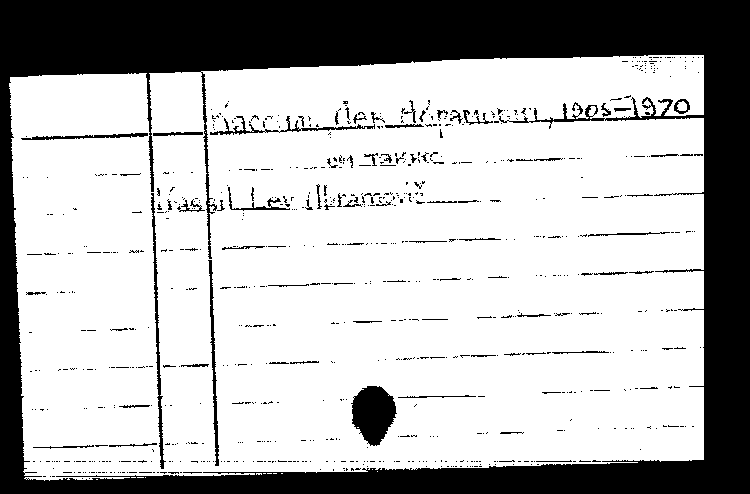 Кассиль, Лев Абрамович, 1905–1970
см также
Kassil, Lev Abramovič